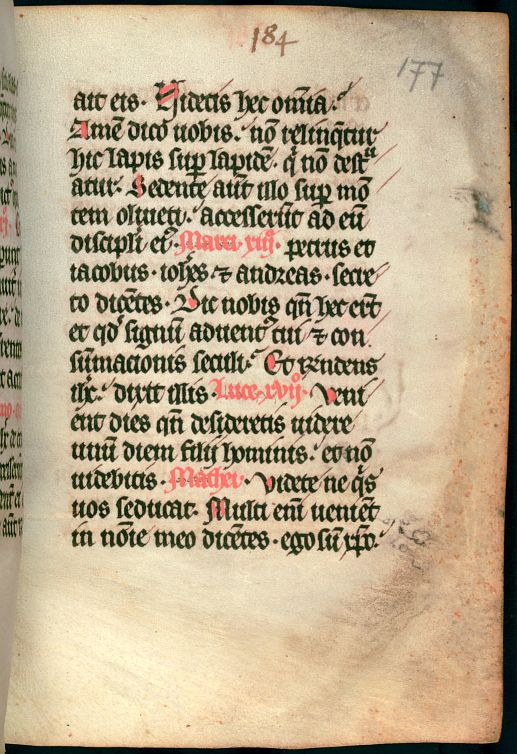 184
177
ait eis. Videtis hec om̄ia.
Amē dico uobis. nō relinq̄tur
hic lapis sup̄ lapidē. q̄ nō dest͛u
atur. Sedente aūt illo sup̄ mō
tem oliueti. accesserūt ad eū
discipli ei᷒. Marci. xiij. petrus et
iacobus. ioh̄es. ⁊ andreas. secre
to dicētes. Dic nobis qn̄ hec erūt
et qd̕ signū aduent᷒ tui ⁊ con
sūmacionis seculi. Et r̄ndens
ih̄c. dixit illis. Luce. xvij. Veni
ent dies qn̄ desideretis uidere
unū diem filij hominis. et nō
uidebitis. Mathei. Videte ne q̄s
uos seducat. Multi enī uenient
in nōie meo dicētes. ego sū xp̄c.